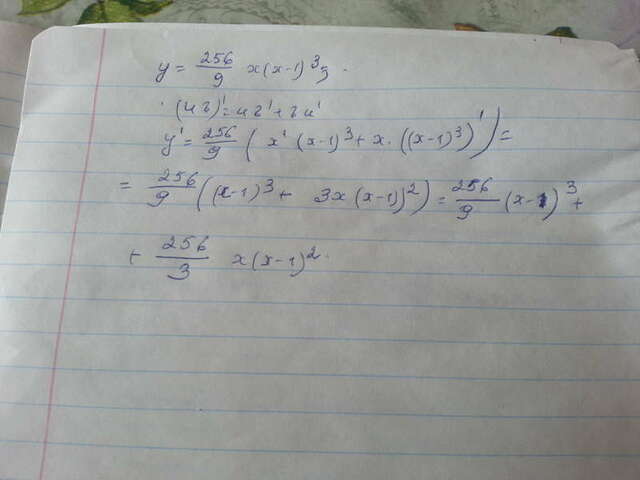 y = 256/9 x(x-1)³;.
(uv)' = uv' + vu'
y' = 256/9 (x'(x-1)³ + x·((x-1)³)') =
= 256/9 ((x-1)³ + 3x(x-1)²) = 256/9 (x-1)³ +
+ 256/3 x(x-1)².